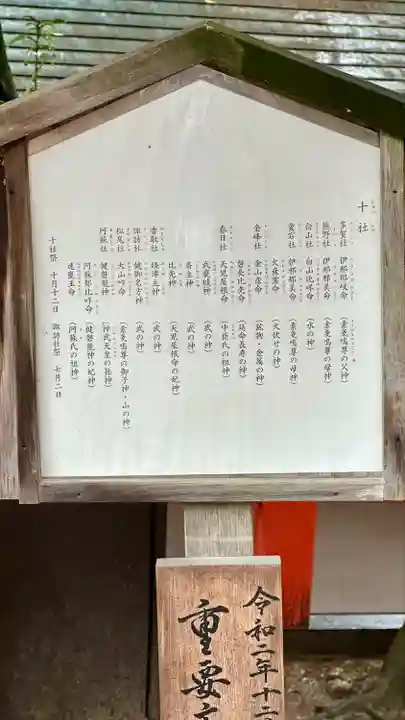 十社
多賀社 伊那那岐命（素戔嗚尊の父神）
熊野社 伊那那美命（素戔嗚尊の母神）
白山社 白山比咩命（水の神）
愛宕社 伊那那美命（素戔嗚尊の母神）
火産霊命（火伏せの神）
金峰社 金山彦命（鉱物・金属の神）
磐長比売命（延命長寿の神）
春日社 天児屋根命（中臣氏の祖神）
武甕槌神（武の神）
斎主神（武の神）
比売神（天児屋根命の妃神）
香取社 経津主神（武の神）
諏訪社 健御名方神（武の神）
松尾社 大山咋命（素戔嗚尊の御子神・山の神）
阿蘇社 健磐龍神（神武天皇の孫神）
阿蘇都比咩命（健磐龍神の妃神）
速瓶玉命（阿蘇氏の祖神）
十社祭 十月十二日 諏訪社祭 七月二日
令和二年十二
重要文